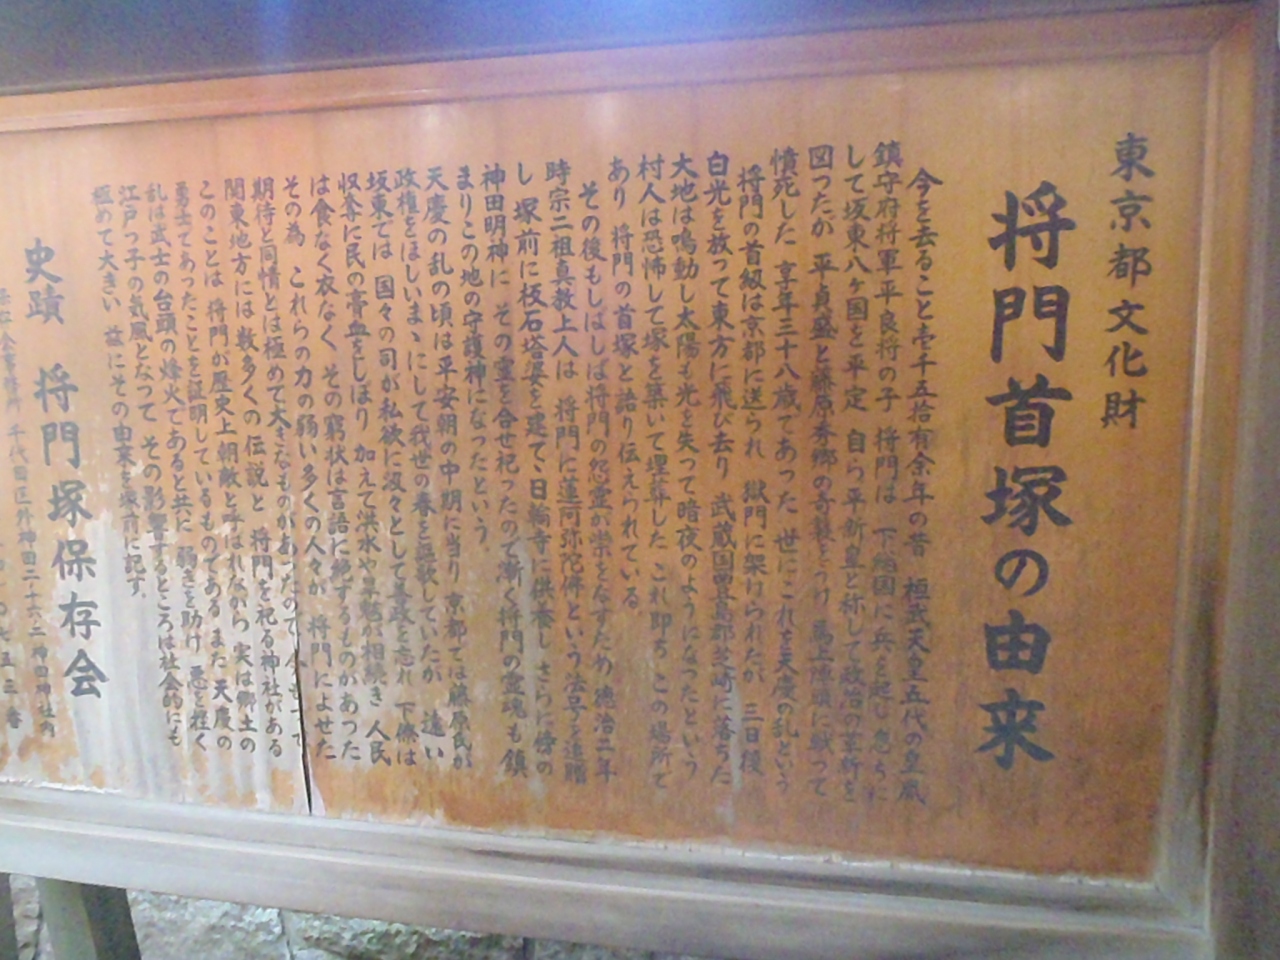 東京都文化財
将門首塚の由来
今を去ること壱千五拾有余年の昔 桓武天皇五代の皇胤
鎮守府将軍平良将の子 将門は 下総国に兵を起し忽ちに
して坂東八ヶ国を平定 自ら平新皇と称して政治の革新を
図ったが 平貞盛と藤原秀郷の奇襲をうけ 馬上陣頭に戦って
憤死した 享年三十八歳であった 世にこれを天慶の乱という
将門の首級は京都に送られ 獄門に架けられたが 三日後
白光を放って東方に飛び去り 武蔵国豊島郡芝崎に落ちた
大地は鳴動し太陽も光を失って暗夜のようになったという
村人は恐怖して塚を築いて埋葬した これ即ち この場所で
あり 将門の首塚と語り伝えられている
その後もしばしば将門の怨霊が祟をなすため徳治二年
時宗二祖真教上人は 将門に蓮阿弥陀佛という法号を追贈
し 塚前に板石塔婆を建てゝ日輪寺に供養し さらに傍の
神田明神に その霊を合せ祀ったので漸く将門の霊魂も鎮
まりこの地の守護神になったという
天慶の乱の頃は平安朝の中期に当り 京都では藤原氏が
政権をほしいまゝにして我世の春を謳歌していたが 遠い
坂東では 国々の司が私欲に汲々として善政を忘れ 下僚は
収奪に民の膏血をしぼり 加えて洪水や旱魃が相続き 人民
は食なく衣なく その窮状は言語に絶するものがあった
その為 これらの力の弱い多くの人々が 将門によせた
期待と同情とは極めて大きなものがあったので 今もって
関東地方には数多くの伝説と 将門を祀る神社がある
このことは 将門が歴史上朝敵と呼ばれながら 実は郷土の
勇士であったことを証明しているものである また 天慶の
乱は武士の台頭の烽火であると共に 弱きを助け 悪を挫く
江戸っ子の気風となって その影響するところは社会的にも
極めて大きい 茲にその由来を塚前に記す
史蹟 将門塚保存会
千代田区外神田二ー十六ー二神田神社内